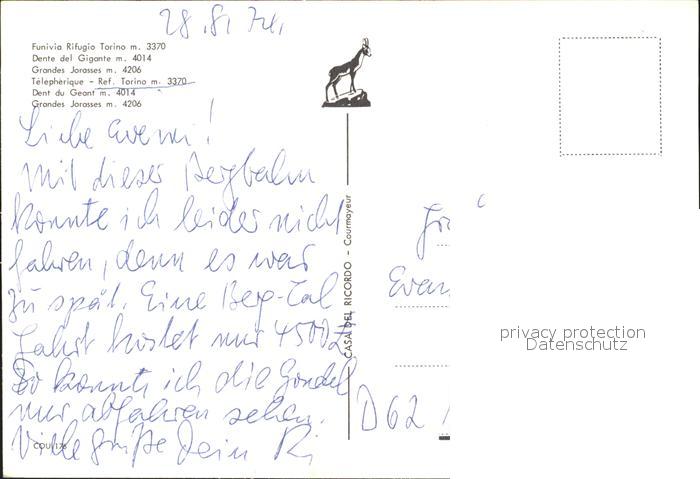 28.8.74.
Funivia Rifugio Torino m. 3370
Dente del Gigante m. 4014
Grandes Jorasses m. 4206
Télephèrique - Ref. Torino m. 3370
Dent du Geant m. 4014
Grandes Jorasses m. 4206
Liebe
Mit dieser Bergbahn
konnte ich leider nicht
fahren, denn es war
zu spät. Eine Berg-Tal
Fahrt kostet nur 4500
So konnte ich die Gondel
nur abfahren sehen.
Viele Grüße Dein
COU/176
CASA DEL RICORDO - Courmayeur
D62
privacy protection
Datenschutz